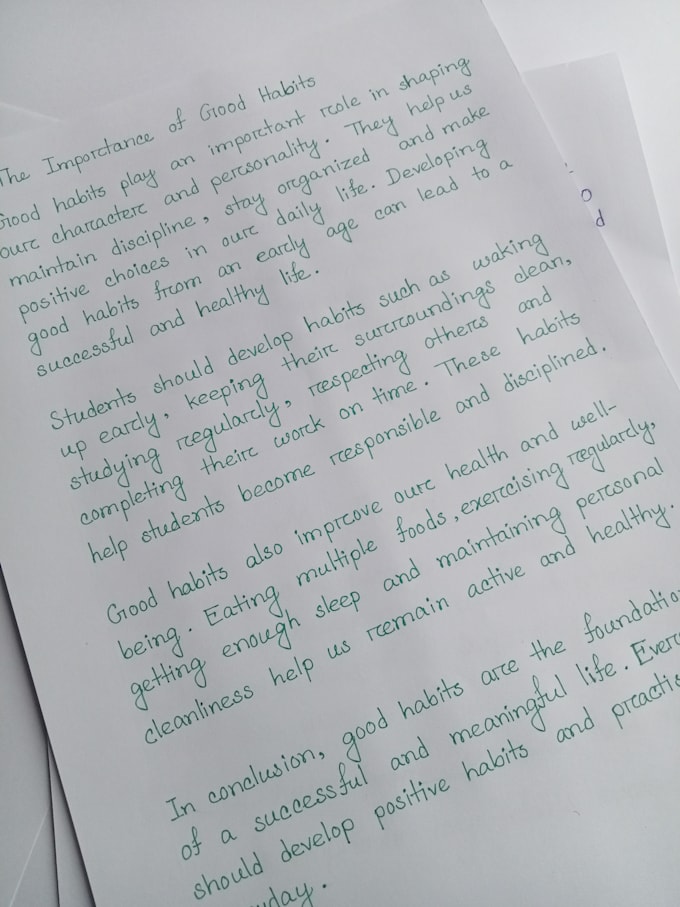 The Importance of Good Habits
Good habits play an important role in shaping
our character and personality. They help us
maintain discipline, stay organized and make
positive choices in our daily life. Developing
good habits from an early age can lead to a
successful and healthy life.
Students should develop habits such as waking
up early, keeping their surroundings clean,
studying regularly, respecting others and
completing their work on time. These habits
help students become responsible and disciplined.
Good habits also improve our health and well-
being. Eating multiple foods, exercising regularly,
getting enough sleep and maintaining personal
cleanliness help us remain active and healthy.
In conclusion, good habits are the foundatio
of a successful and meaningful life. Ever
should develop positive habits and practis
yday.
o
d